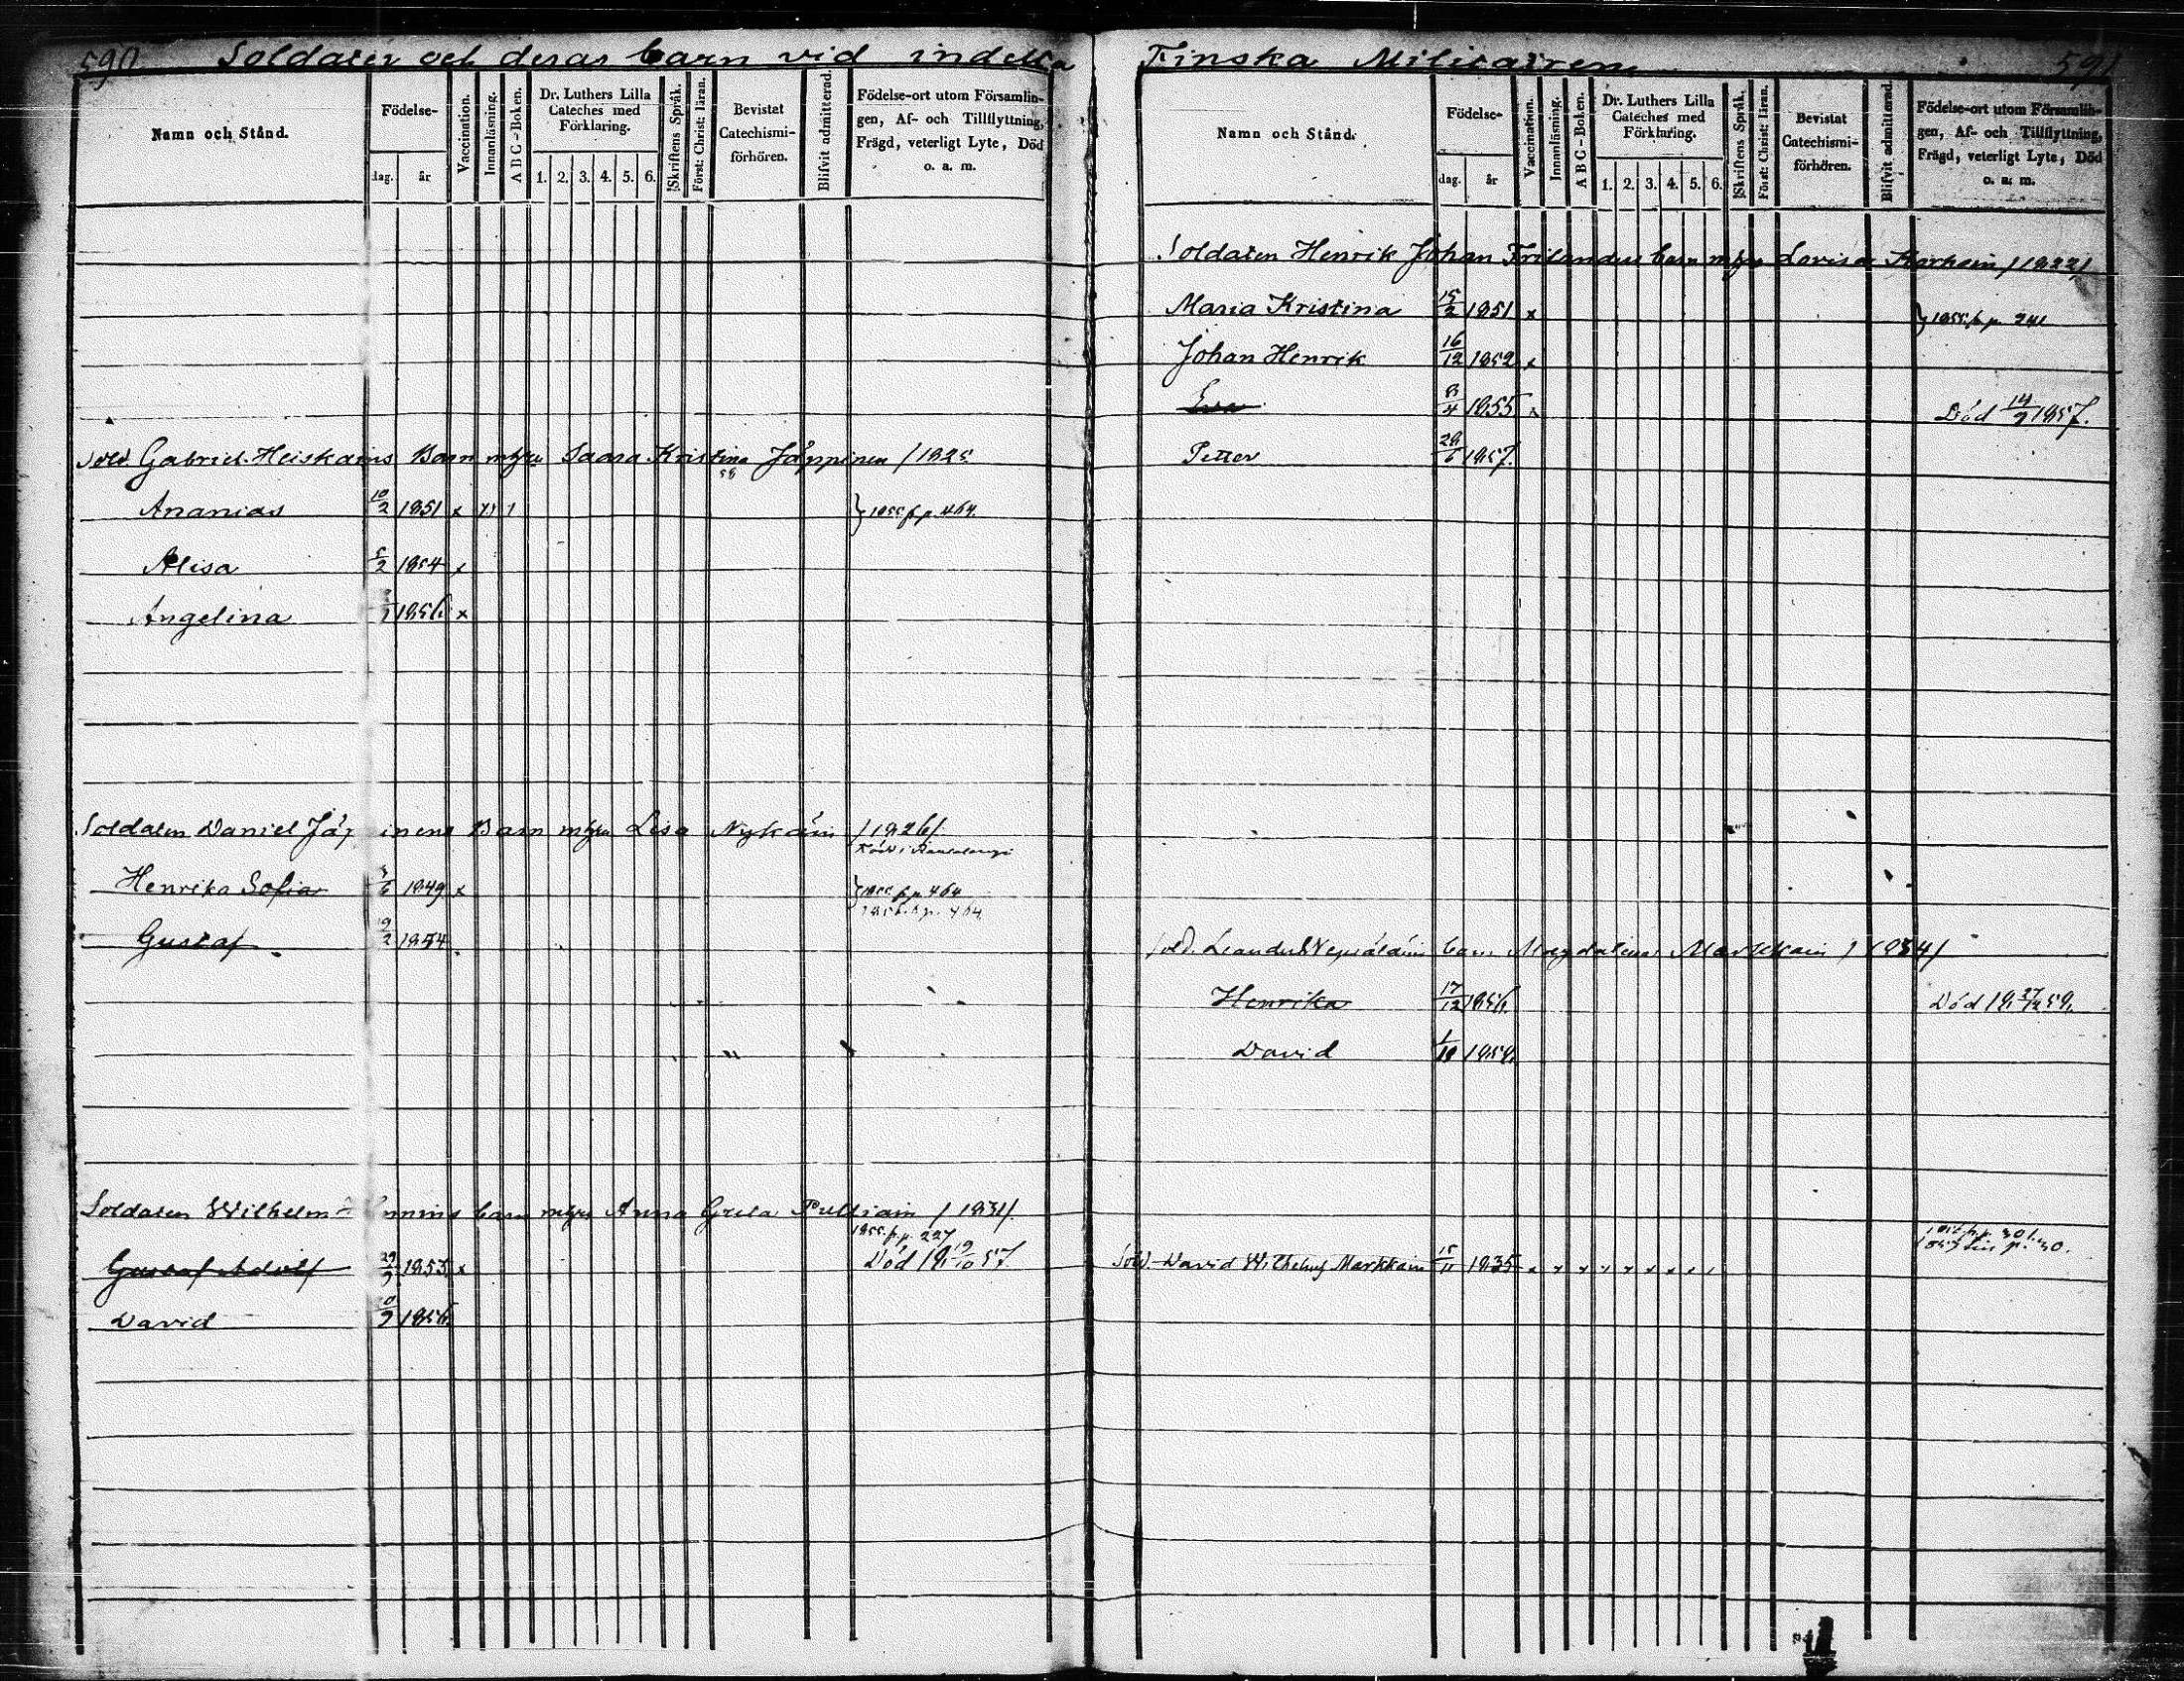 590 Soldater och deras barn vid indelta
Namn och Stånd.
Födelse-
dag. år
Vaccination.
Innanläsning.
A B C - Boken.
Dr. Luthers Lilla
Cateches med
Förklaring.
1. 2. 3. 4. 5. 6.
Skriftens Språk.
Först: Christ: läran.
Bevistat
Catechismi-
förhören.
Blifvit admitterad.
Födelse-ort utom Församlin-
gen, Af- och Tillflyttning,
Frägd, veterligt Lyte, Död
o. a. m.
Sold. Gabriel Heiskains Barn m hu Saara Kristina Jäppinen / 1825
58
Ananias 10/2 1851 x 1855 fr. p. 464.
Alisa 5/2 1854 x
Angelina 1856 x
Soldaten Daniel Jäp inens Barn m hu Lisa Nykäin / 1826/
Henrika Sofia 1849 x 1855 fr. p. 464
1856 t. p. 464
Gustaf 1854
Soldaten Wilhelm barn m hu Anna Greta Pulliain / 1831/.
1855 fr. p. 227
Gustaf Adolf 29/9 1853 x Död 18 19/10 57.
David 1856
Finska Militairen 591
Namn och Stånd.
Födelse-
dag. år
Vaccination.
Innanläsning.
A B C - Boken.
Dr. Luthers Lilla
Cateches med
Förklaring.
1. 2. 3. 4. 5. 6.
Skriftens Språk.
Först: Christ: läran.
Bevistat
Catechismi-
förhören.
Blifvit admitterad.
Födelse-ort utom Försambl-
gen, Af- och Tillflyttning,
Frägd, veterligt Lyte, Död
o. a. m.
Soldaten Henrik Johan Frilanders barn m hu Lovisa Karhain / 1822/
Maria Kristina 15/2 1851 x 1855 fr. p. 241
Johan Henrik 16/12 1852 x
Eva 8/4 1855 x Död 14/9 1857.
Petter 28/6 1857.
Sold. Leander barn Magdalena Markkain / 1834/
Henrika 17/12 1856 Död 18 27/12 58.
David 1/10 1858
Sold. David Wilhelm Markkain 15/11 1835 x x x x x x x x